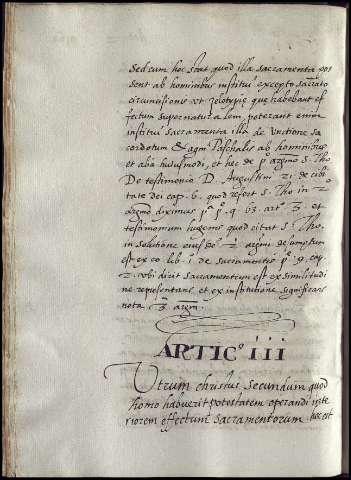 sed cum hoc stat quod illa sacramenta pos
sent ab hominibus institui excepto sacrāto
circumcisionis et zelotypie que habebant ef
fectum supernaturalem. poterant enim
institui sacramenta illa de Unctione sa
cerdotum & agni Paschalis ab hominibus
et alia huiusmodi, et hec de pº argmo S. Tho
De testimonio D. Augustini 21 de civi
tate dei cap. 6. quod refert S. Tho in 2º
argmo diximus pª pª q. 63. artº 3. et
testimonium hugonis quod citat S. Tho.
in solutione eius. sº 2. argmi desumptum
est ex eo lib. º de sacramentis pª. 9. cap.
2. ubi dicit sacramentum est ex similitudi
ne representans et ex institutione significans
nota 3. argm.
ARTICº III
Utrum christus Secundum quod
homo habuerit potestatem operandi inte
riorem effectum sacramentorum hec est